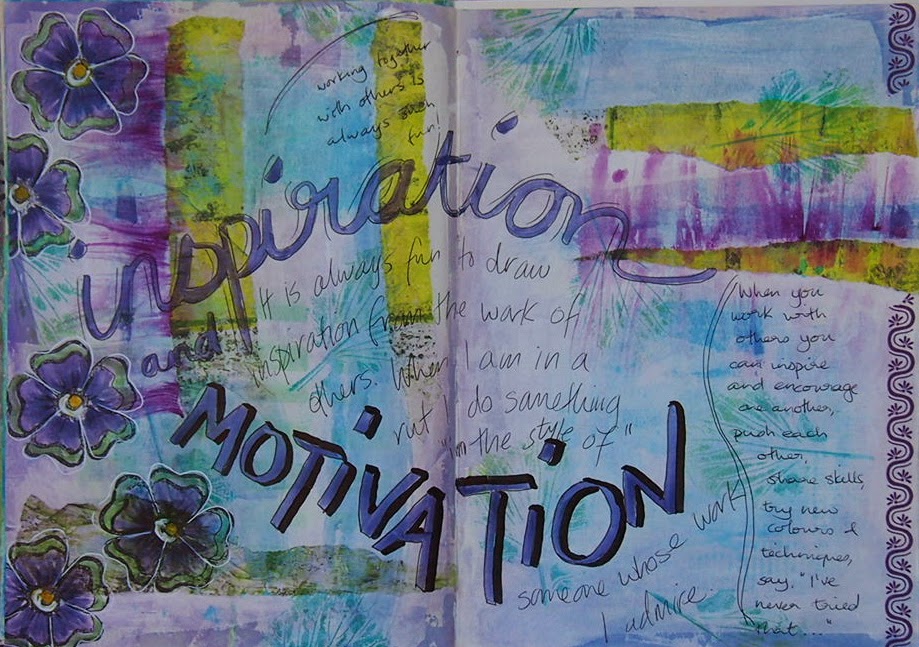 working together
with others is
always such
fun!
inspiration
and
It is always fun to draw
inspiration from the work of
others. When I am in a
rut I do something
"in the style of"
MOTIVATION
someone whose work
I admire.
When you
work with
others you
can inspire
and encourage
one another,
push each
other,
share skills,
try new
colours &
techniques,
say, "I've
never tried
that..."